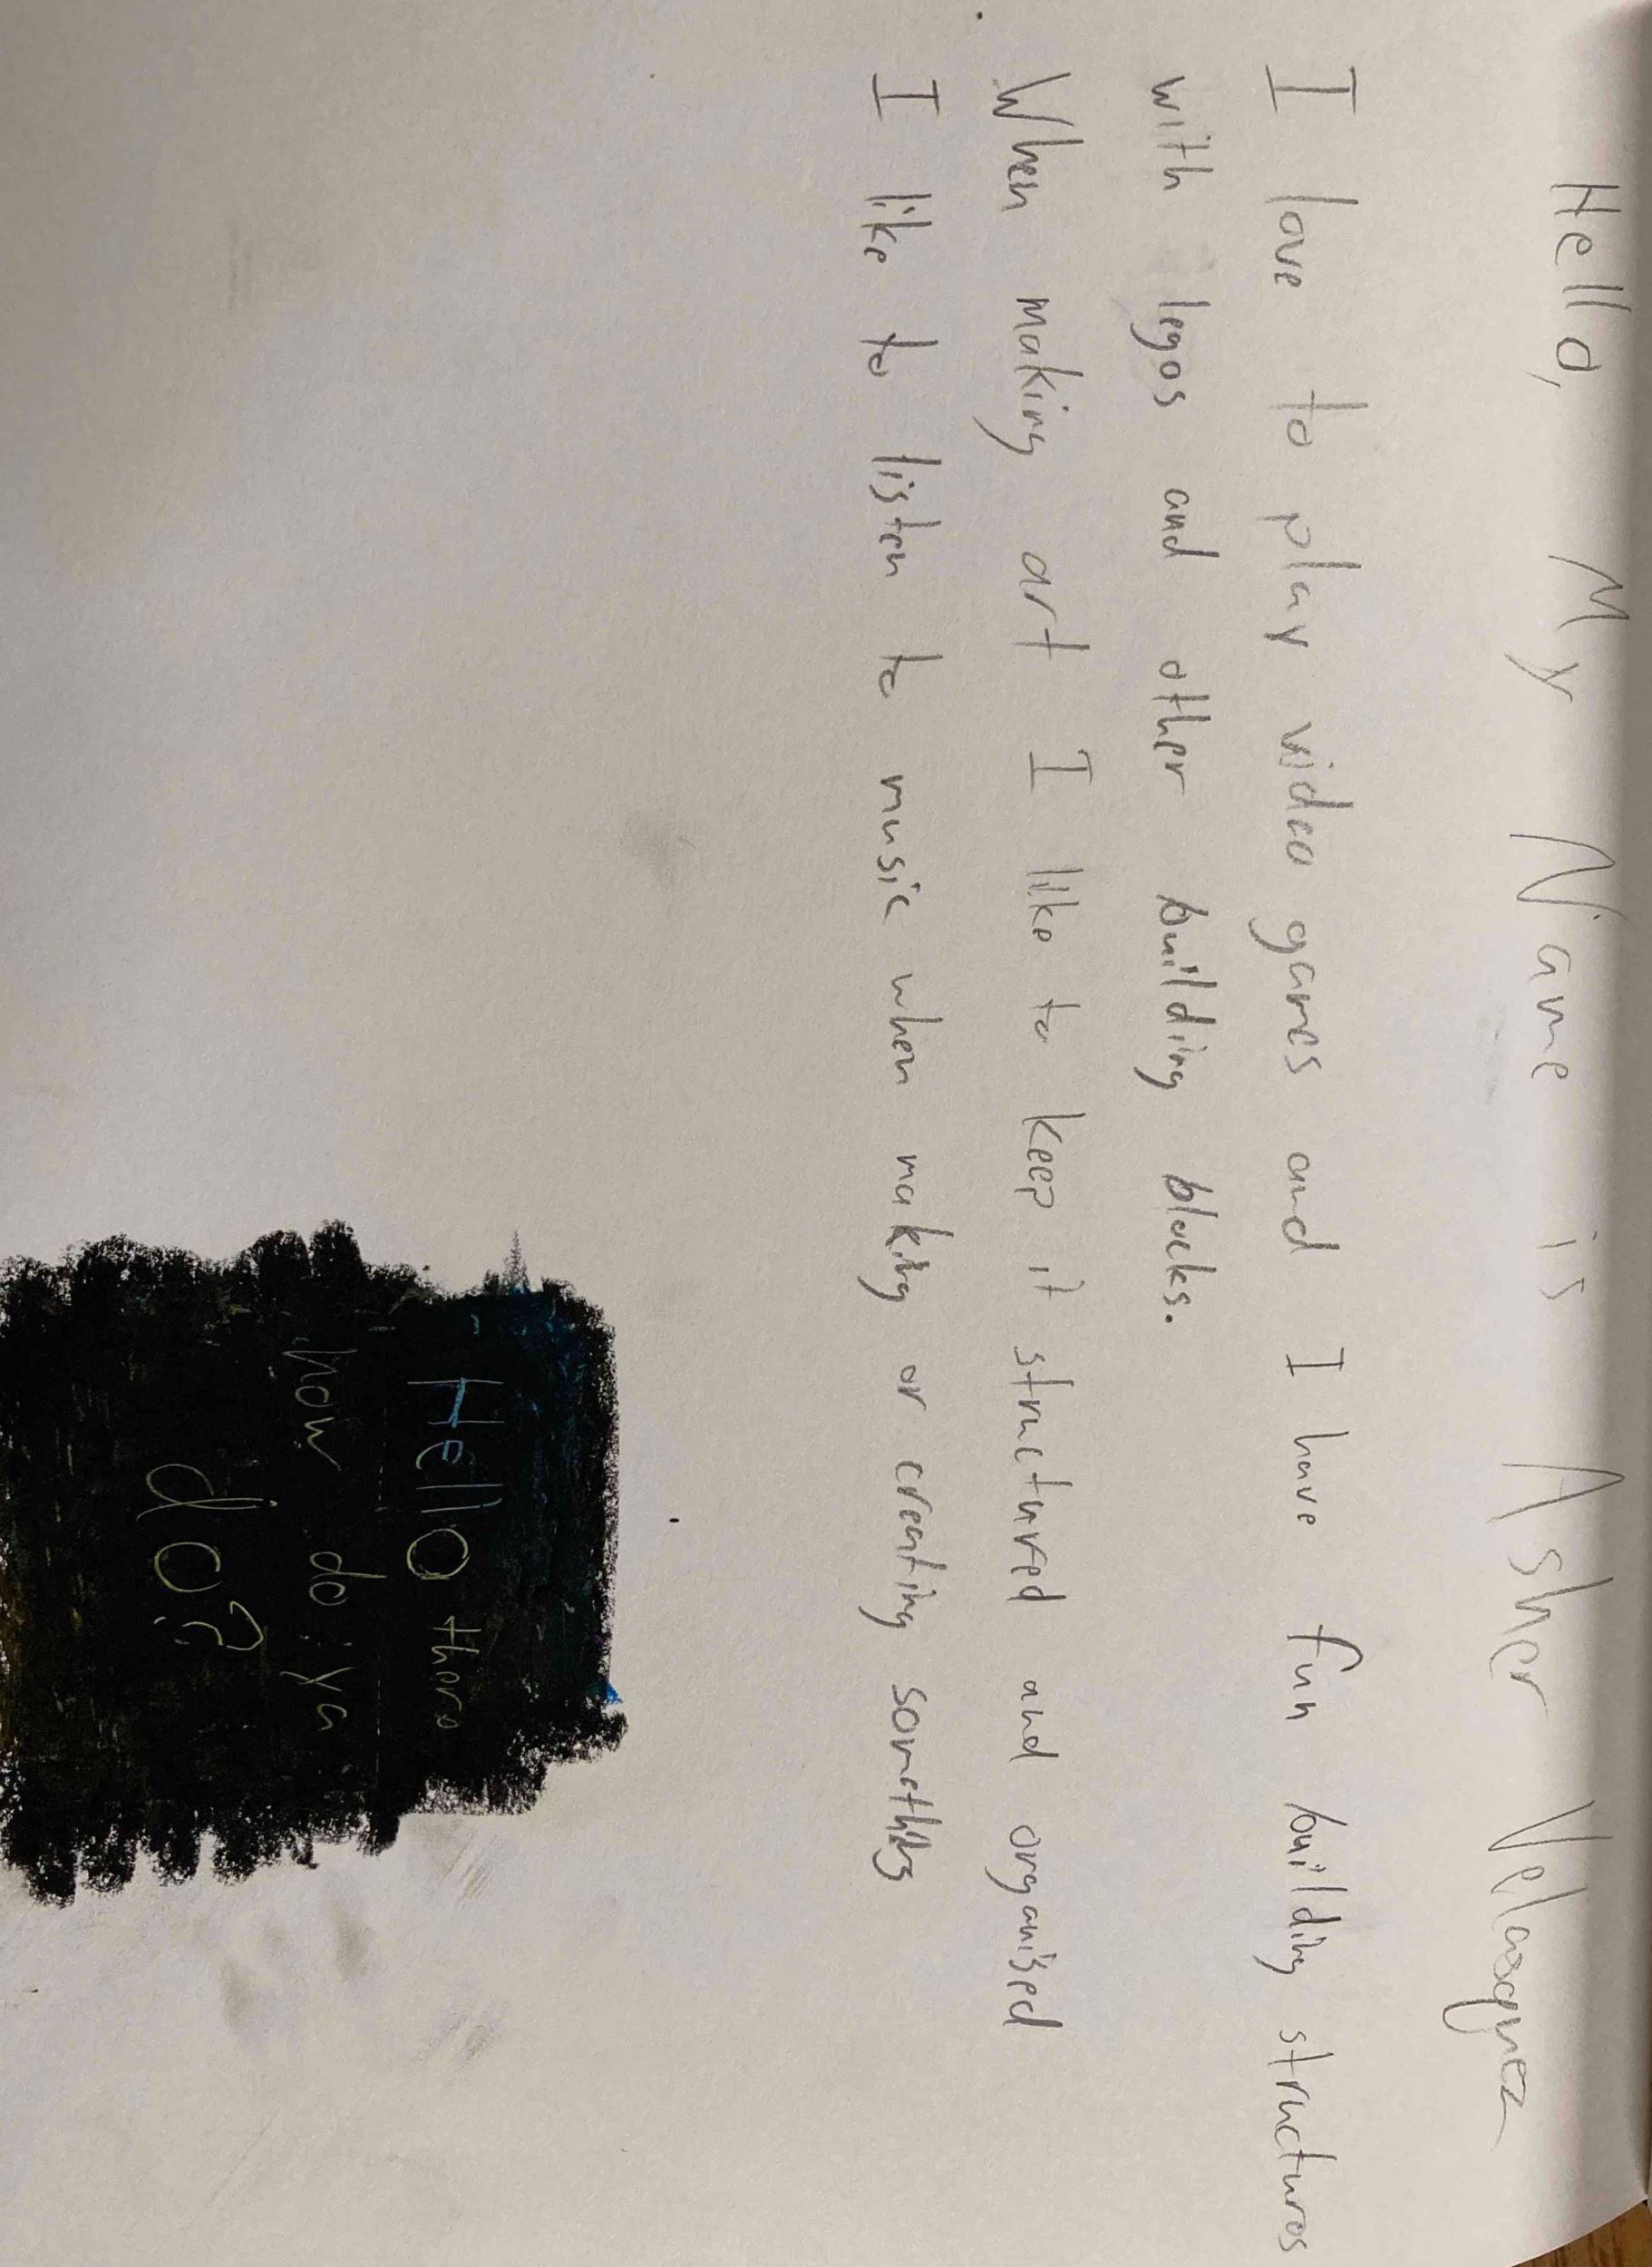 Hello, My Name is Asher Velasquez
I love to play video games and I have fun building structures
with legos and other building blocks.
When making art I like to keep it structured and organized
I like to listen to music when making or creating something
Hello there
how do ya
do?